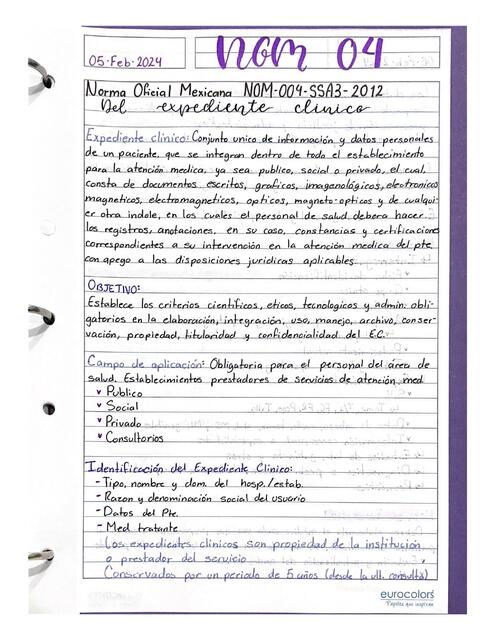 05·Feb·2024
NOM 04
Norma Oficial Mexicana NOM-004-SSA3-2012
Del expediente clinico
Expediente clinico: Conjunto unico de información y datos personales
de un paciente, que se integran dentro de todo el establecimiento
para la atención medica, ya sea publico, social o privado, el cual,
consta de documentos escritos, graficos, imagenológicos, electronicos
magneticos, electromagneticos, opticos, magneto-opticos y de cualqui-
er otra indole, en los cuales el personal de salud debera hacer
los registros, anotaciones, en su caso, constancias y certificaciones
correspondientes a su intervención en la atención medica del pte.
con apego a las disposiciones juridicas aplicables.
OBJETIVO:
Establece los criterios cientificos, eticos, tecnologicos y admin. obli-
gatorios en la elaboración, integración, uso, manejo, archivo, conser-
vación, propiedad, titularidad y confidencialidad del E.C.
Campo de aplicación: Obligatoria para el personal del área de
salud. Establecimientos prestadores de servicios de atención med
Publico
Social
Privado
Consultorios
Identificación del Expediente Clinico:
- Tipo, nombre y dom. del hosp./estab.
- Razon y denominación social del usuario
- Datos del Pte.
- Med tratante
Los expedientes clinicos son propiedad de la institución
o prestador del servicio
Conservados por un periodo de 5 años (desde la ult. consulta)
eurocolors
Papeles que inspiran